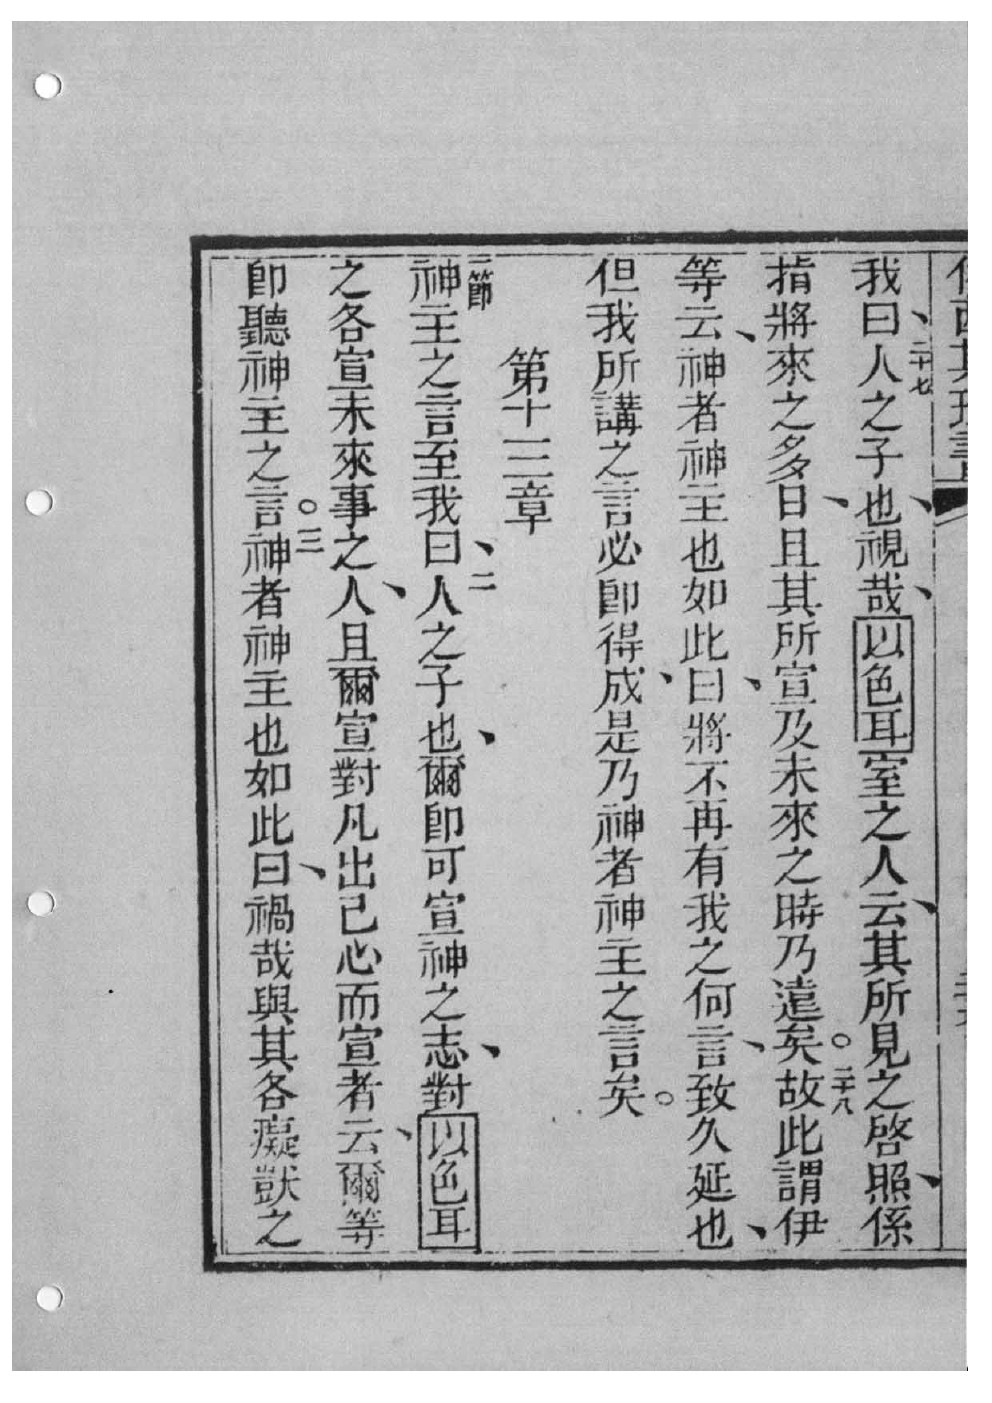 我曰、二十七人之子也、視哉、以色耳室之人云、其所見之啓照、係
指將來之多日、且其所宣及未來之時乃遠矣。二十八故此謂伊
等云、神者神主也如此曰、將不再有我之何言、致久延也、
但我所講之言必卽得成、是乃神者神主之言矣。
第十三章
一節神主之言至我曰、二人之子也、爾卽可宣神之志、對以色耳
之各宣未來事之人、且爾宣對凡出己心而宣者云、爾等
卽聽神主之言。三神者神主也如此曰、禍哉與其各癡獃之